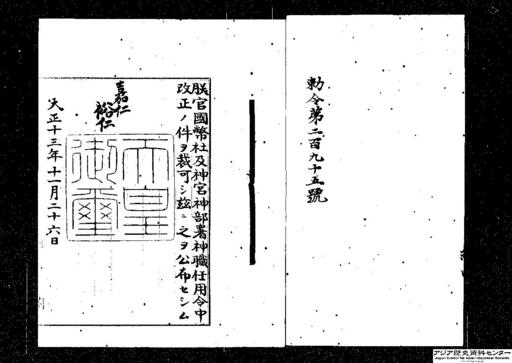 勅令第二百九十五號
朕官國幣社及神宮神部署神職任用令中
改正ノ件ヲ裁可シ茲ニ之ヲ公布セシム
嘉仁
裕仁
天皇
御璽
大正十三年十一月二十六日
アジア歴史資料センター
Japan Center for Asian Historical Records